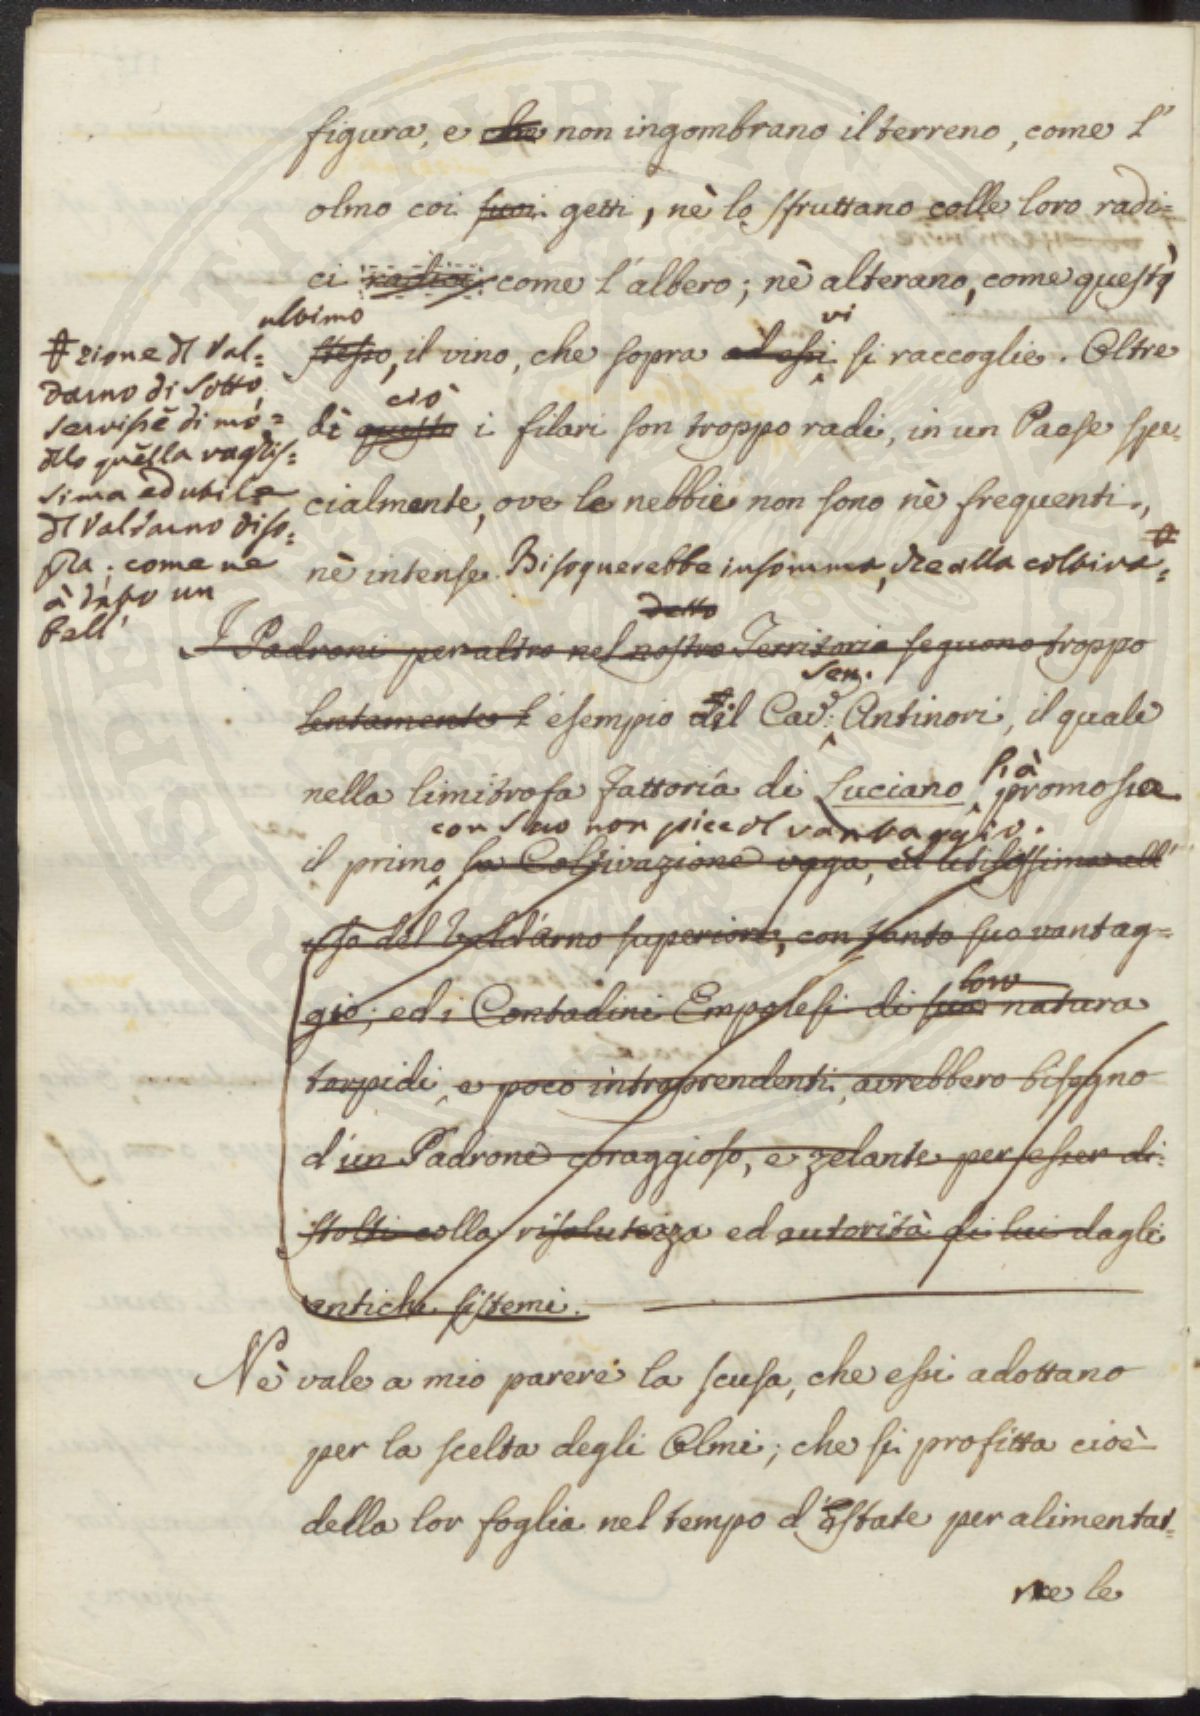 figura, e che non ingombrano il terreno, come l'
olmo coi suoi getti, nè lo sfruttano colle loro radi=
ci radici come l'albero; nè alterano, come questo
ultimo
stesso, il vino, che sopra ad essi vi si raccoglie. Oltre
di questo ciò i filari son troppo radi, in un Paese spe=
cialmente, ove le nebbie non sono nè frequenti,
nè intense. Bisognerebbe insomma, che alla coltiva=
# zione di Val=
darno di Sotto,
servisse di mo=
dello quella vaghis=
sima ed utile
di Valdarno di so=
pra; come ne
à dato un
bell'
detto
I Padroni per altro nel nostro Territorio seguono troppo
lentamente l'esempio il Cav: Sen. Antinori, il quale
nella limitrofa Fattoria di Luciano l'à promossa
con suo non piccol vantaggio.
il primo la Coltivazione vaga, ed utilissima all'
uso del Valdarno superiore, con tanto suo vantag=
gio; ed i Contadini Empolesi di sua loro natura
torpidi, e poco intraprendenti, avrebbero bisogno
d'un Padrone coraggioso, e zelante per esser di=
stolti colla risolutezza ed autorità di lui dagli
antichi sistemi.
Nè vale a mio parere la scusa, che essi adottano
per la scelta degli Olmi; che si profitta cioè
della lor foglia nel tempo d'Estate per alimentar=
ne le